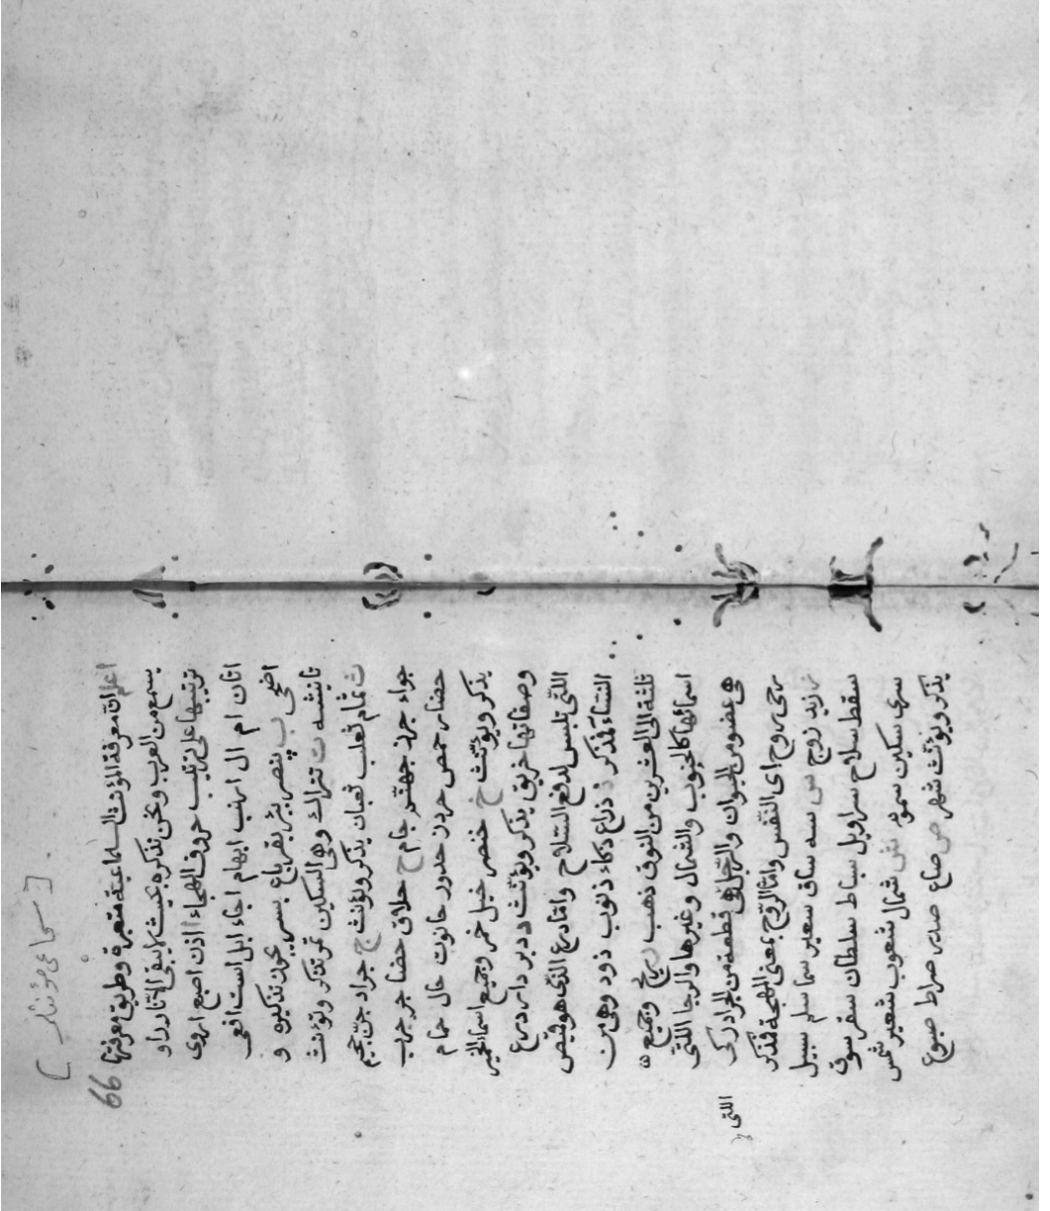 [ سماعی مؤنثلر ]
66
اعلم ان معرفة المؤنث السماعیة متعسرة وطریق معرفتها
یسمع من العرب ونحن نذکره بحیث لا یبقی النادر او
ترتیبها علی ترتیب حروف الهجاء ا اذن اصبع اروی
اتان ام ال ارنب ابهام اجاء ابل است افعی
اضحی ب بنصر بئر بقر باع بسر یجوز تذکیره و
تأنیثه ت تتراك وهی السکین تمر تذکر وتؤنث
ث ثمام ثعلب ثعبان یذکر ویؤنث ج جراد جن جحیم
جواء جرز جهنم جام ح حلاق حضاجر حرب
حضار حمص حرور حدور حانوت حال حمام
یذکر ویؤنث خ خنصر خیل خمر وجمیع اسماء الخمر
وصفاتها خرنق یذکر ویؤنث د دبر دار درع
اللتی تلبس لدفع السلاح واما درع الذی هو قمیص
النساء فمذکر ذ ذراع ذکاء ذنوب ذود وهی من
ثلثة الی العشرین من النوق ذهب ر ریح وجمیع
اسمائها کالجنوب والشمال وغیرها والرجا اللتی
هی عضو من الحیوان والرجل هی قطعة من الجراد رکی
اللتی
رحی روح ای النفس واما الروح بمعنی المهجة فمذکر
ز زند زوج س سه ساق سعیر سما سلم سبیل
سقط سلاح سراویل سباط سلطان سقر سوق
سری سکین سموم ش شمال شعوب شعیر شمس
یذکر ویؤنث شهر ص صاع صدر صراط صبوع